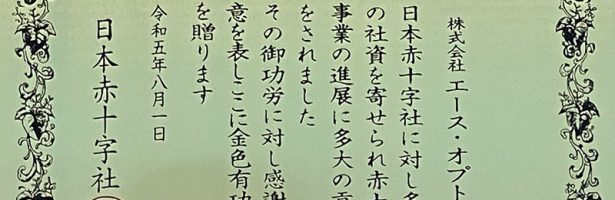 株式会社 エース・オプト
日本赤十字社に対し多
の社資を寄せられ赤十
事業の進展に多大の貢
をされました
その御功労に対し感謝
意を表しここに金色有功
を贈ります
令和五年八月一日
日本赤十字社